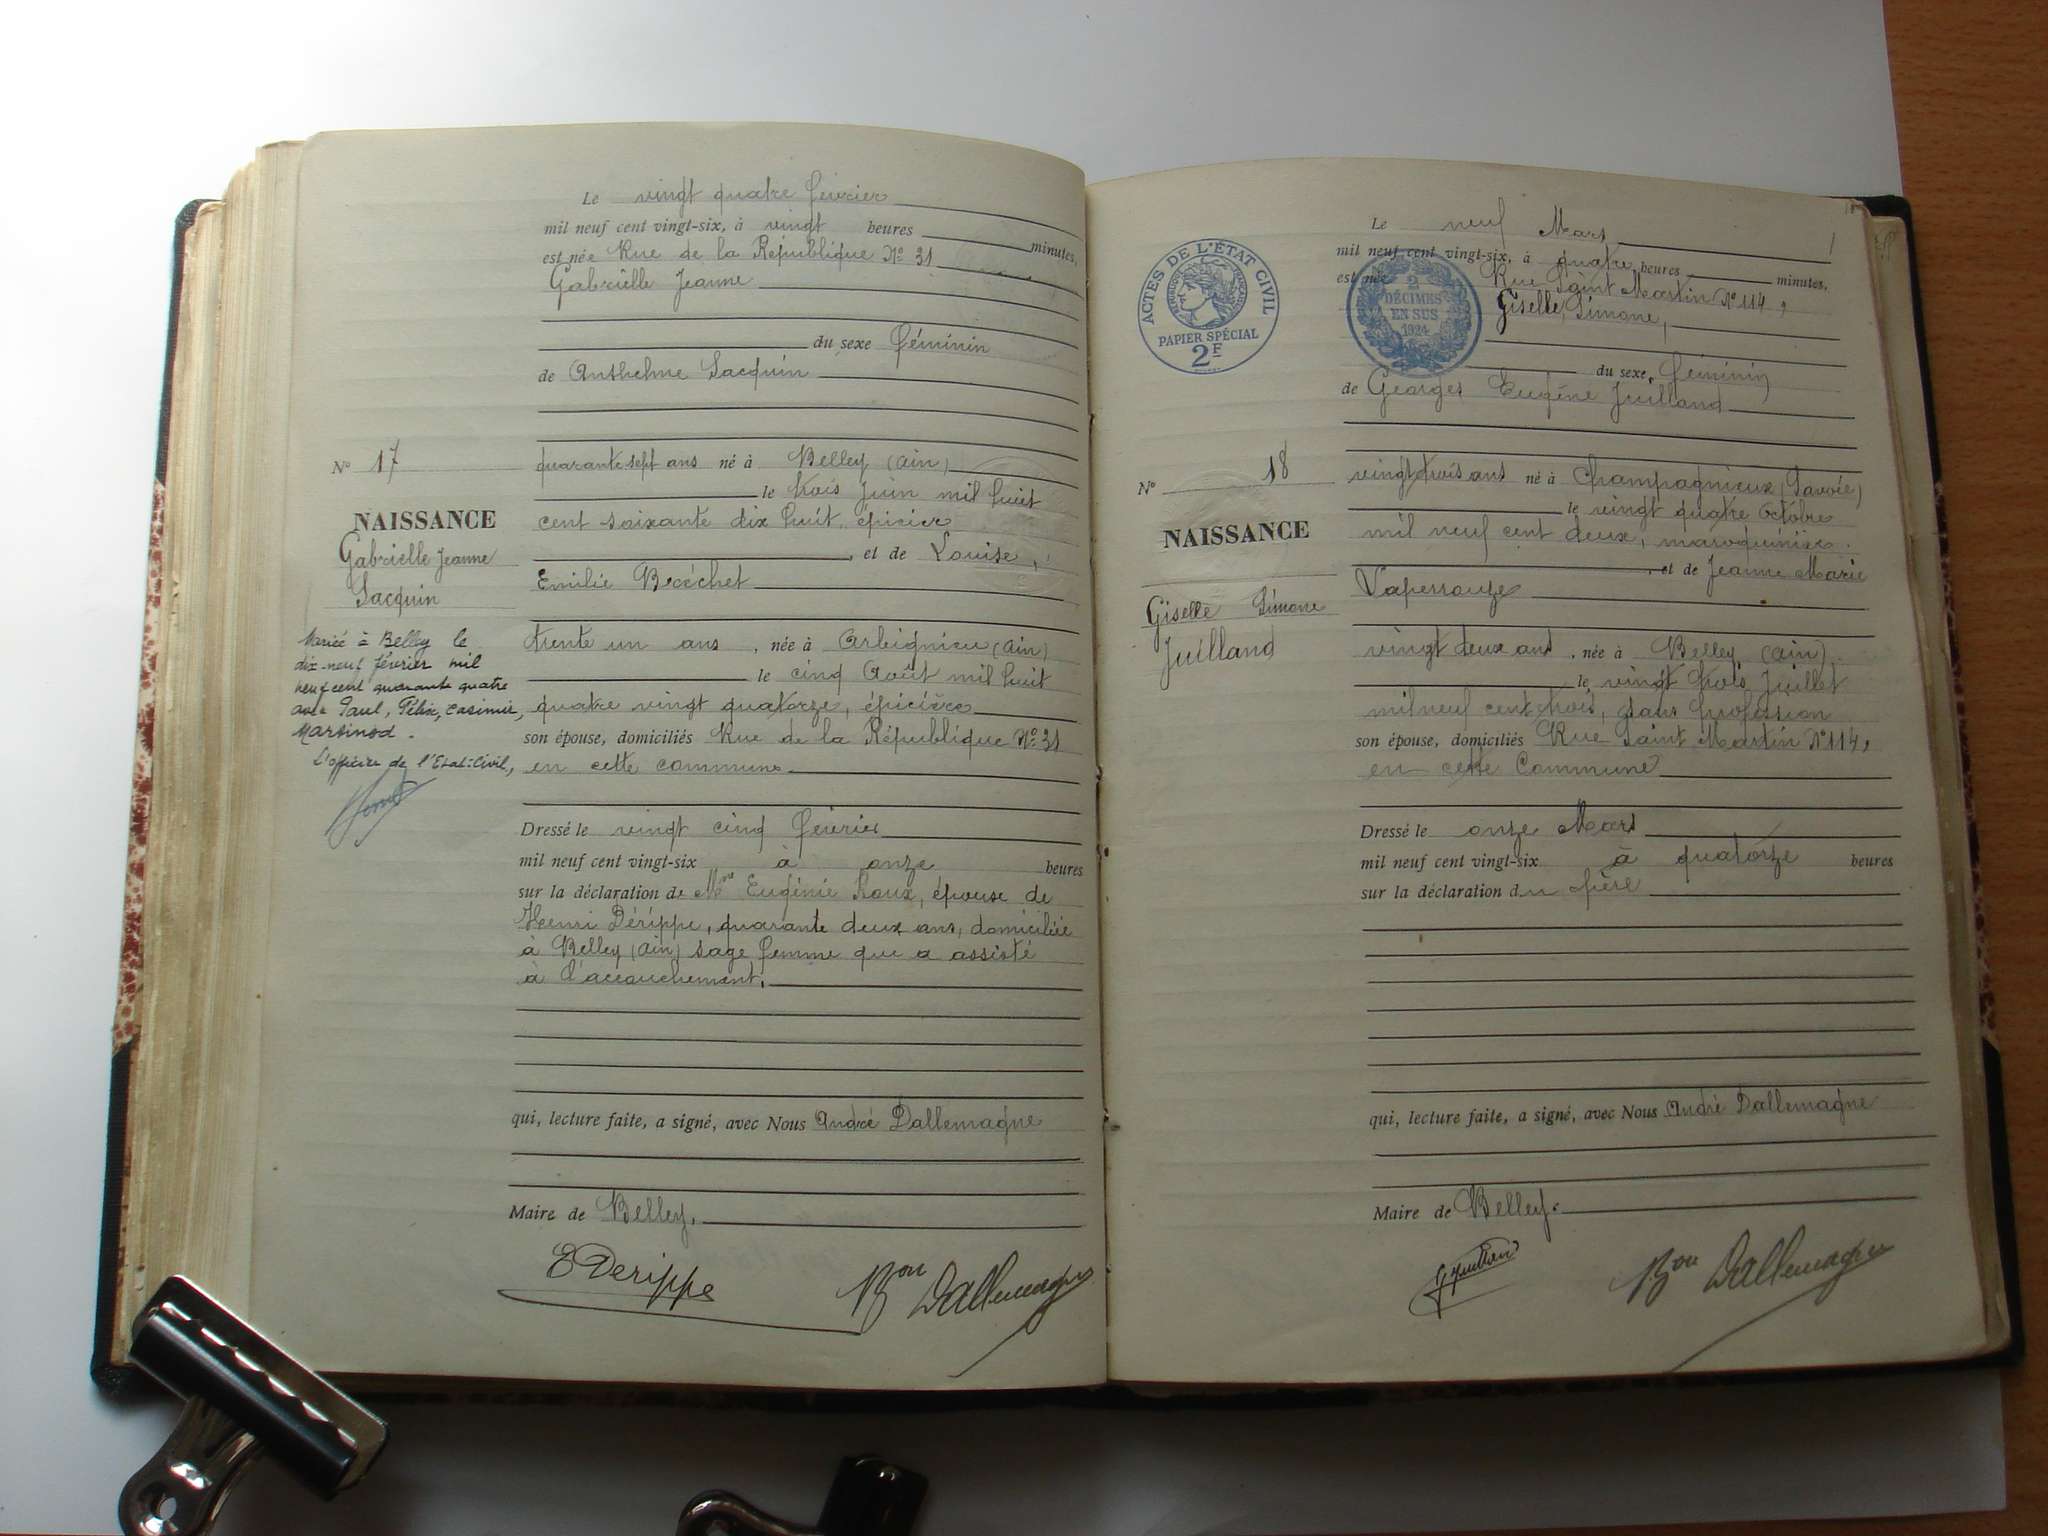 Le vingt quatre février
mil neuf cent vingt-six, à vingt heures minutes,
est née Rue de la République N° 31
Gabrielle Jeanne
du sexe féminin
de Anthelme Jacquin
N° 17
quarante sept ans né à Belley (Ain)
le trois Juin mil huit
NAISSANCE
cent soixante dix huit, épicier
Gabrielle Jeanne
et de Louise,
Jacquin
Emilie Brochet
Mariée à Belley le
dix-neuf février mil
neuf cent quarante quatre
avec Paul, Félix, Casimir,
Marsinod.
L'officier de l'Etat-Civil,
trente un ans, née à Arbignieu (Ain)
le cinq Août mil huit
quatre vingt quatorze, épicière
son épouse, domiciliés Rue de la République N° 31
en cette commune
Dressé le vingt cinq février
mil neuf cent vingt-six à onze heures
sur la déclaration de Mme Eugénie Roux, épouse de
Henri Dérippe, quarante deux ans, domiciliée
à Belley (Ain) sage femme qui a assisté
à l'accouchement.
qui, lecture faite, a signé, avec Nous André Dallemagne
Maire de Belley.
E Derippe Bon Dallemagne
Le neuf Mars
mil neuf cent vingt-six, à quatre heures minutes,
est née Rue Saint Martin N° 114,
Giselle, Simone,
ACTES DE L'ÉTAT CIVIL
PAPIER SPÉCIAL
2F
2
DÉCIMES
EN SUS
1924
du sexe féminin
de Georges Eugène Juilland
N° 18
vingt trois ans né à Champagneux (Savoie)
le vingt quatre Octobre
NAISSANCE
mil neuf cent deux, maroquinier.
et de Jeanne Marie
Giselle Simone
Juilland
Vaperrouze
vingt deux ans, née à Belley (Ain)
le vingt trois Juillet
mil neuf cent trois, sans profession
son épouse, domiciliés Rue Saint Martin N° 114,
en cette Commune
Dressé le onze Mars
mil neuf cent vingt-six à quatorze heures
sur la déclaration du père
qui, lecture faite, a signé, avec Nous André Dallemagne
Maire de Belley.
G Juilland Bon Dallemagne